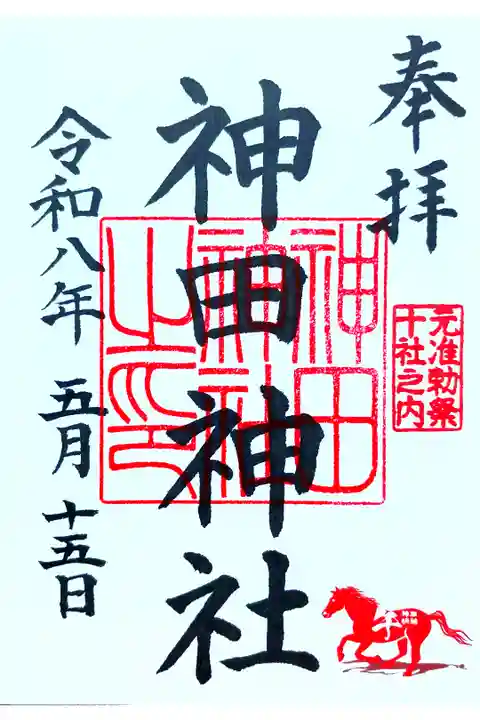 奉拝
元准勅祭
十社之内
神田神社
神田
神社
之印
令和八年 五月 十五日